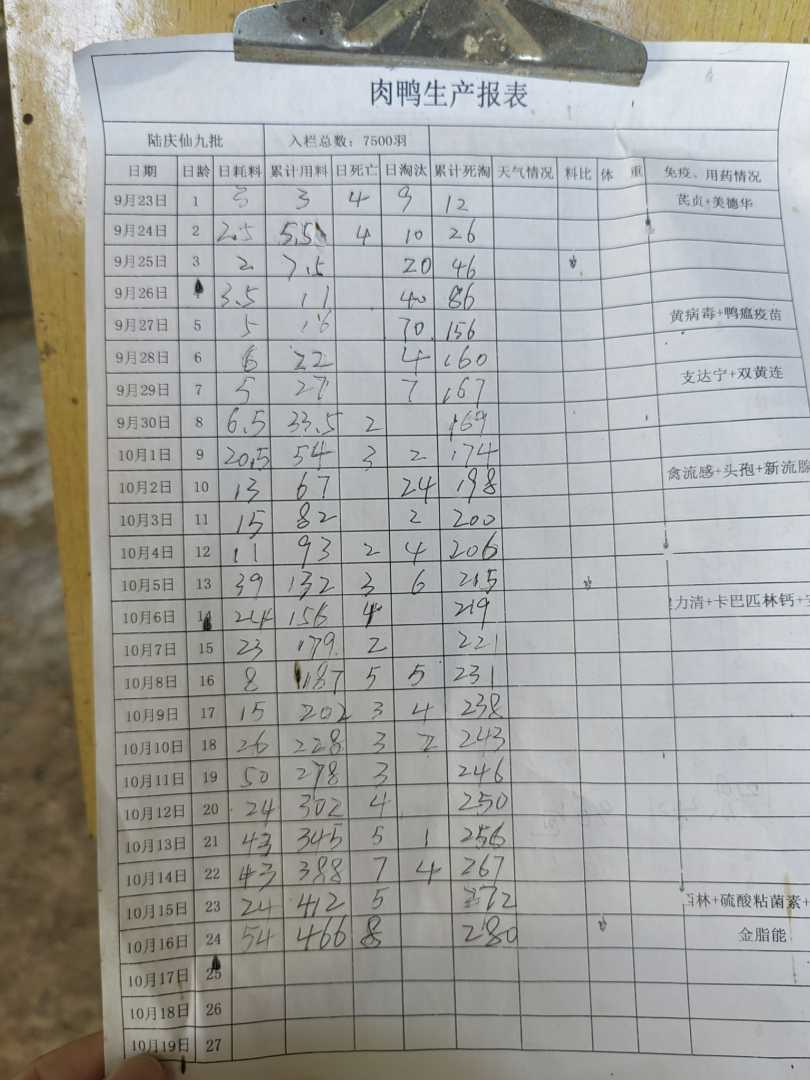 肉鸭生产报表
陆庆仙九批 入栏总数：7500羽
日期 日龄 日耗料 累计用料 日死亡 日淘汰 累计死淘 天气情况 料比 体 重 免疫、用药情况
9月23日 1 3 3 4 9 12 芪贞+美德华
9月24日 2 2.5 5.5 4 10 26
9月25日 3 2 7.5 20 46
9月26日 3.5 11 40 86
9月27日 5 5 16 70 156 黄病毒+鸭瘟疫苗
9月28日 6 6 22 4 160
9月29日 7 5 27 7 167 支达宁+双黄连
9月30日 8 6.5 33.5 2 169
10月1日 9 20.5 54 3 2 174
10月2日 10 13 67 24 198 禽流感+头孢+新流腺
10月3日 11 15 82 2 200
10月4日 12 11 93 2 4 206
10月5日 13 39 132 3 6 215
10月6日 14 24 156 4 219 力清+卡巴匹林钙+
10月7日 15 23 179 2 221
10月8日 16 8 187 5 5 231
10月9日 17 15 202 3 4 238
10月10日 18 26 228 3 2 243
10月11日 19 50 278 3 246
10月12日 20 24 302 4 250
10月13日 21 43 345 5 1 256
10月14日 22 43 388 7 4 267
10月15日 23 24 412 5 272 林+硫酸粘菌素+
10月16日 24 54 466 8 280 金脂能
10月17日 25
10月18日 26
10月19日 27